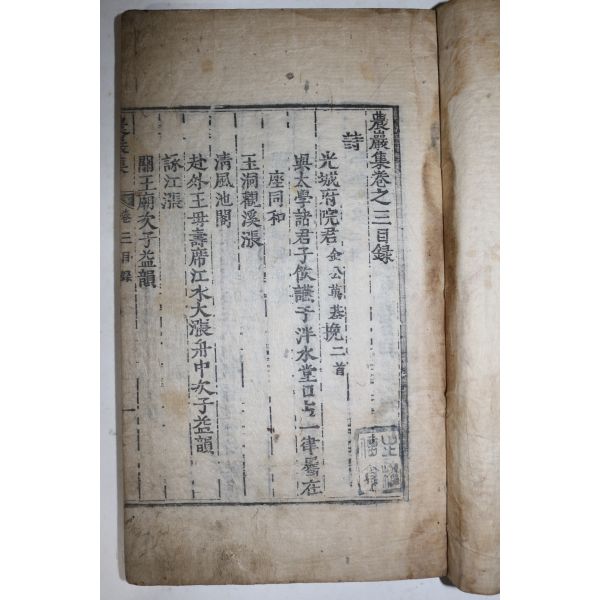 農巖集卷之三目錄
詩
光城府院君金公萬基挽二首
與太學諸君子飮讌于泮水堂口占一律屬在
座同和
玉洞觀溪漲
清風池閣
赴外王母壽席江水大漲舟中次子益韻
詠江漲
關王廟次子益韻
農巖集 卷三 目錄 一